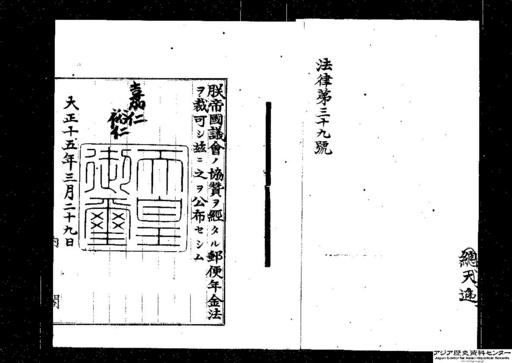 總 天 遞
法律第三十九號
朕帝國議會ノ協贊ヲ經タル郵便年金法
ヲ裁可シ玆ニ之ヲ公布セシム
嘉仁
裕仁
天皇
御璽
大正十五年三月二十九日
内閣
アジア歴史資料センター
Japan Center for Asian Historical Records